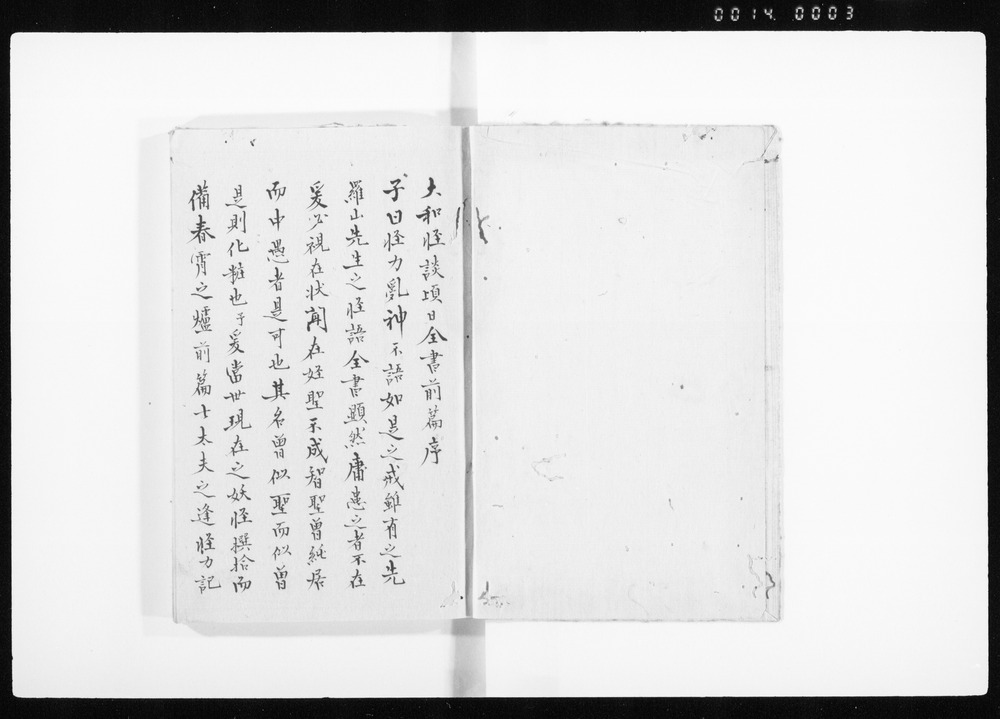 0014 0003
大和怪談頃日全書前篇序
子曰怪力亂神不語如是之戒雖有之先
羅山先生之怪語全書顕然庸愚之者不在
爰必視在状聞在姪聖不成智聖曽純居
而中愚者是可也其名曽似聖而似曽
是則化粧也于爰當世現在之妖怪撰拾而
備春霄之爐前篇士太夫之逢怪力記